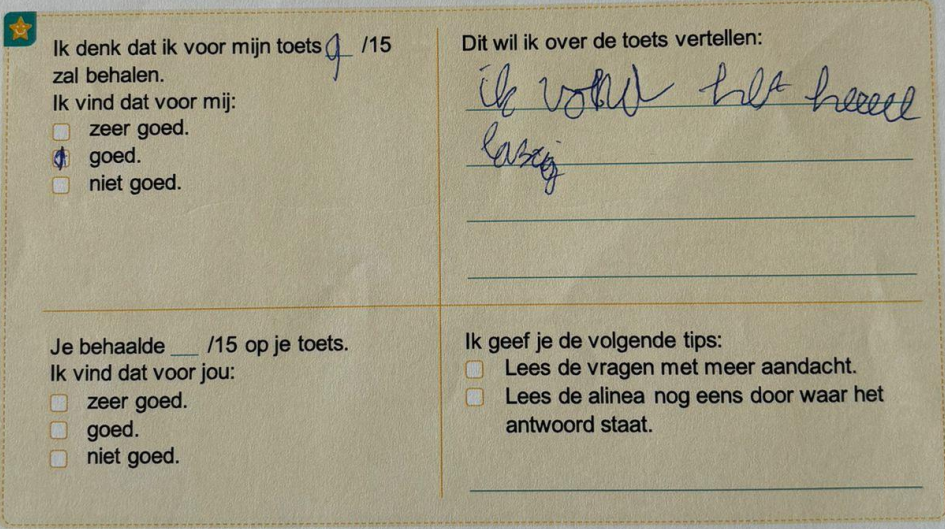 Ik denk dat ik voor mijn toets 9 /15
zal behalen.
Ik vind dat voor mij:
zeer goed.
goed.
niet goed.
Dit wil ik over de toets vertellen:
ik vond het heeel
lastig
Je behaalde ___ /15 op je toets.
Ik vind dat voor jou:
zeer goed.
goed.
niet goed.
Ik geef je de volgende tips:
Lees de vragen met meer aandacht.
Lees de alinea nog eens door waar het
antwoord staat.